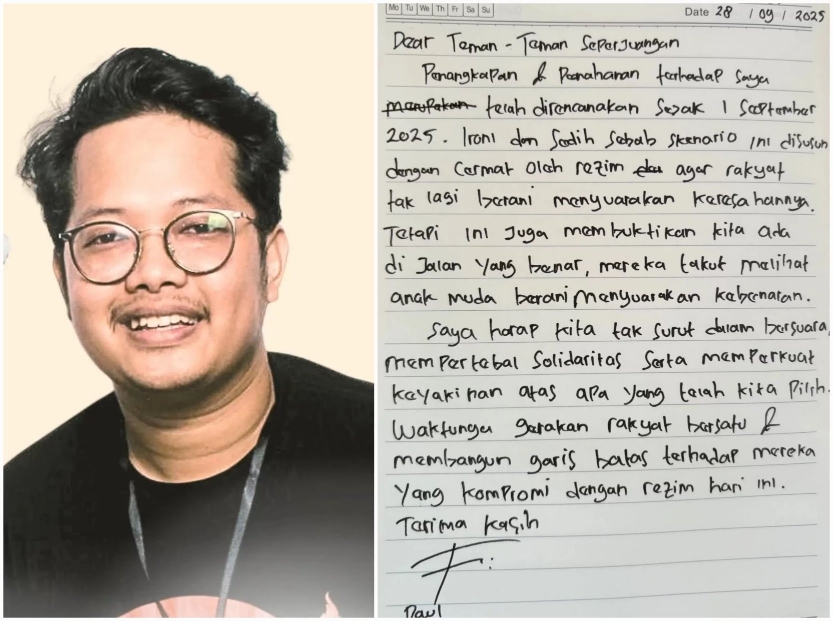 Mo Tu We Th Fr Sa Su
Date 28 / 09 / 2025
Dear Teman - Teman Seperjuangan
Penangkapan & Penahanan terhadap saya
merupakan telah direncanakan Sejak 1 September
2025. Ironi dan Sedih Sebab Skenario ini disusun
dengan Cermat Oleh rezim dan agar rakyat
tak lagi berani menyuarakan keresahannya.
Tetapi ini Juga membuktikan kita ada
di Jalan yang benar, mereka takut melihat
anak muda berani menyuarakan kebenaran.
Saya harap kita tak surut dalam bersuara,
mempertebal Solidaritas Serta memperkuat
keyakinan atas apa yang telah kita Pilih.
Waktunya gerakan rakyat bersatu &
membangun garis batas terhadap mereka
yang kompromi dengan rezim hari ini.
Terima kasih
Paul